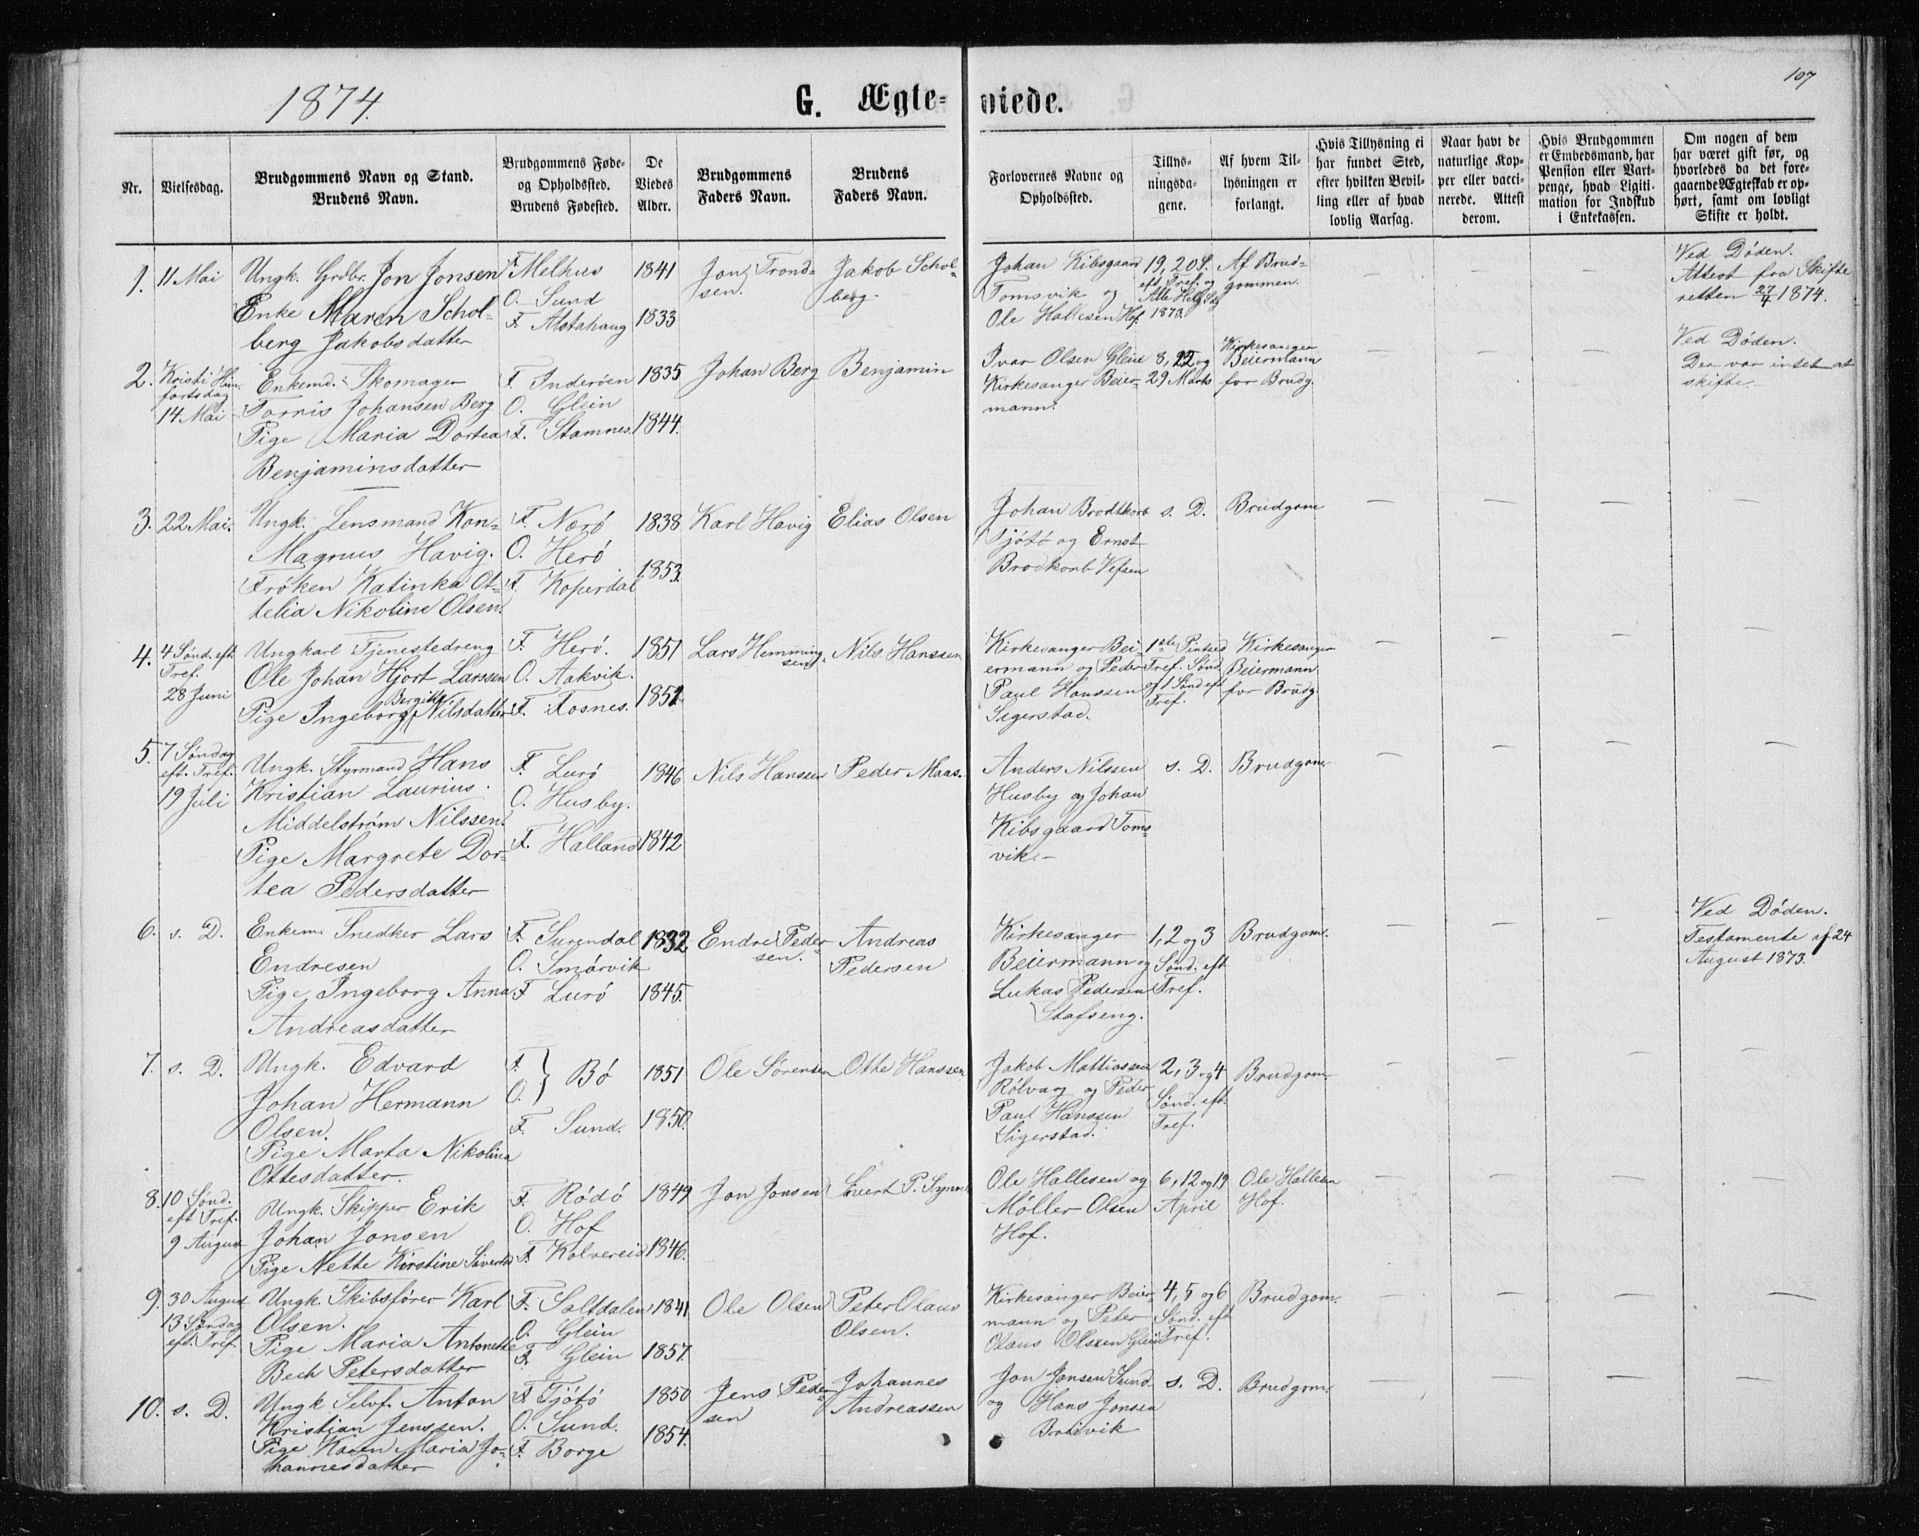 107
1874.
G. Ægte-
viede.
Nr.
Vielsesdag.
Brudgommens Navn og Stand.
Brudens Navn.
Brudgommens Føde-
og Opholdssted.
Brudens Fødested.
De
Viedes
Alder.
Brudgommens
Faders Navn.
Brudens
Faders Navn.
Forlovernes Navne og
Opholdssted.
Tillys-
ningsda-
gene.
Af hvem Til-
lysningen er
forlangt.
Hvis Tillysning ei
har fundet Sted,
efter hvilken Bevil-
ling eller af hvad
lovlig Aarsag.
Naar havt de
naturlige Kop-
per eller vacci-
nerede. Attest
derom.
Hvis Brudgommen
er Embedsmand, har
Pension eller Vart-
penge, hvad Ligiti-
mation for Indskud
i Enkekassen.
Om nogen af dem
har været gift før, og
hvorledes da det fore-
gaaende Ægteskab er op-
hørt, samt om lovligt
Skifte er holdt.
1. 11 Mai
Ungk. Grdbr. Jon Jonsen
Enke Maren Schol-
berg Jakobsdatter
F. Melhus
O. Sund
F. Alstahaug
1841
1833
Jon Trond-
sen.
Jakob Schol-
berg.
Johan Kibsgaard
Tomsvik og
Ole Hallesen Hof.
19, 20 S.
eft Tref. og
Alle Helg. Dag
1873.
Af Brud-
gommen.
Ved Døden.
Attest fra Skifte
retten 27/4 1874.
2. Kristi Him
fartsdag
14 Mai
Enkemd. Skomager
Tornis Johansen Berg
Pige Maria Dortea
Benjaminsdatter
F. Inderøen
O. Glein
F. Stamnes.
1835
1844.
Johan Berg
Benjamin
Ivar Olsen Glein
Kirkesanger Beier-
mann.
8, 22 og
29 Marts
Kirkesanger
Beiermann
for Brudg.
Ved Døden.
Der var intet at
skifte.
3. 22 Mai.
Ungk. Lensmand Kon-
Magnus Havig.
Frøken Katinka Ot-
telia Nikoline Olsen.
F. Nærø
O. Herø
F. Koperdal
1838
1853.
Karl Havig
Elias Olsen
Johan Brodtkorb
Tjøtø og Ernst
Brodkorb Vefsen
s. D.
Brudgom
4. 4 Sønd. eft
Tref.
28 Juni
Ungkarl Tjenestedreng
Ole Johan Hjort Larssen
Pige Ingeborg Bergitte Nilsdatter
F. Herø.
O. Aakvik.
F. Fosnes.
1851
1852.
Lars Hemming-
sen
Nils Hanssen
Kirkesanger Bei-
ermann og Peder
Paul Hanssen
Sigerstad.
1ste Pintsed
Tref. Sønd.
og 1 Sønd eft
Tref.
Kirkesanger
Beiermann
for Brudg.
5. 7 Søndag
eft. Tref.
19 Juli
Ungk. Styrmand Hans
Kristian Laurius
Middelstrøm Nilssen.
Pige Margrete Dor-
tea Pedersdatter
F. Lurø
O. Husby.
F. Halland
1846
1842
Nils Hanssen
Peder Maas.
Anders Nilssen
Husby og Johan
Kibsgaard Toms
vik.
s. D.
Brudgom.
6. s. D.
Enkem. Snedker Lars
Endresen
Pige Ingeborg Anna
Andreasdatter
F. Surendal
O. Smørvik
F. Lurø
1832
1845.
Endre Peder-
sen.
Andreas
Pedersen
Kirkesanger
Beiermann og
Lukas Pedersen
Stafseng.
1, 2 og 3
Sønd. eft
Tref.
Brudgom.
Ved Døden.
Testamente af 24
August 1873.
7. s. D.
Ungk. Edvard
Johan Hermann
Olsen.
Pige Marta Nikolina
Ottesdatter.
F.
O. } Bø
F. Sund.
1851
1850.
Ole Sørensen
Otte Hanssen
Jakob Mattiassen
Rølvaag og Peder
Paul Hanssen
Sigerstad.
2, 3 og 4
Sønd. eft.
Tref.
Brudgom.
8. 10 Sønd.
eft Tref.
9 August
Ungk. Skipper Erik
Johan Jonsen
Pige Nette Kirstine Sivertsd
F. Rødø
O. Hof
F. Kolvereid
1849
1846.
Jon Jonsen
Sivert P.
Ole Hallesen og
Møller Olsen
Hof.
6, 12 og 19
April
Ole Hallesen
Hof.
9. 30 August
13 Søndag
eft. Tref.
Ungk. Skibsfører Karl
Olsen.
Pige Maria Antonette
Bech Petersdatter
F. Saltdalen
O. Glein
F. Glein
1841
1857.
Ole Olsen
Peter Olaus
Olsen.
Kirkesanger Beier
mann og Peter
Olaus Olssen Glein
4, 5 og 6
Sønd. eft
Tref.
Brudgom.
10. s. D.
Ungk. Selvf. Anton
Kristian Jenssen.
Pige Karen Maria Jo-
hannesdatter
F. Tjøtø
O. Sund.
F. Borge
1850
1854.
Jens Peder-
sen
Johannes
Andreassen
Jon Jonsen Sund
og Hans Jonsen
s. D.
Brudgom.